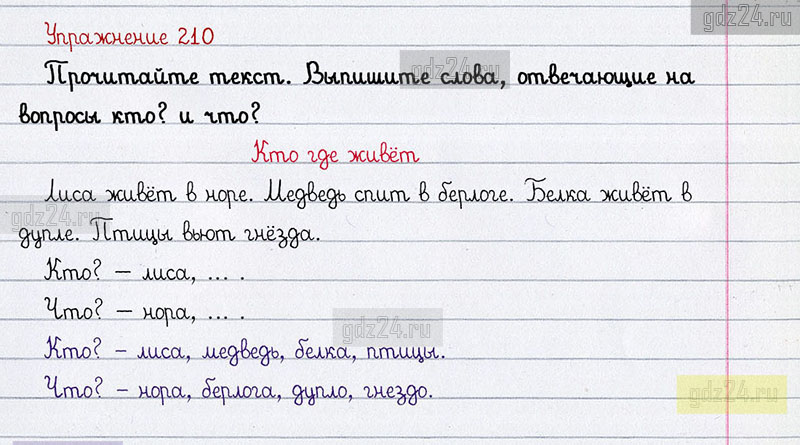 gdz24.ru
Упражнение 210
Прочитайте текст. Выпишите слова, отвечающие на
gdz24.ru
вопросы кто? и что?
Кто где живёт
Лиса живёт в норе. Медведь спит в берлоге. Белка живёт в
gdz24.ru
дупле. Птицы вьют гнёзда.
Кто? – лиса, ... .
Что? – нора, ... .
gdz24.ru
Кто? – лиса, медведь, белка, птицы.
Что? – нора, берлога, дупло, гнездо.
gdz24.ru